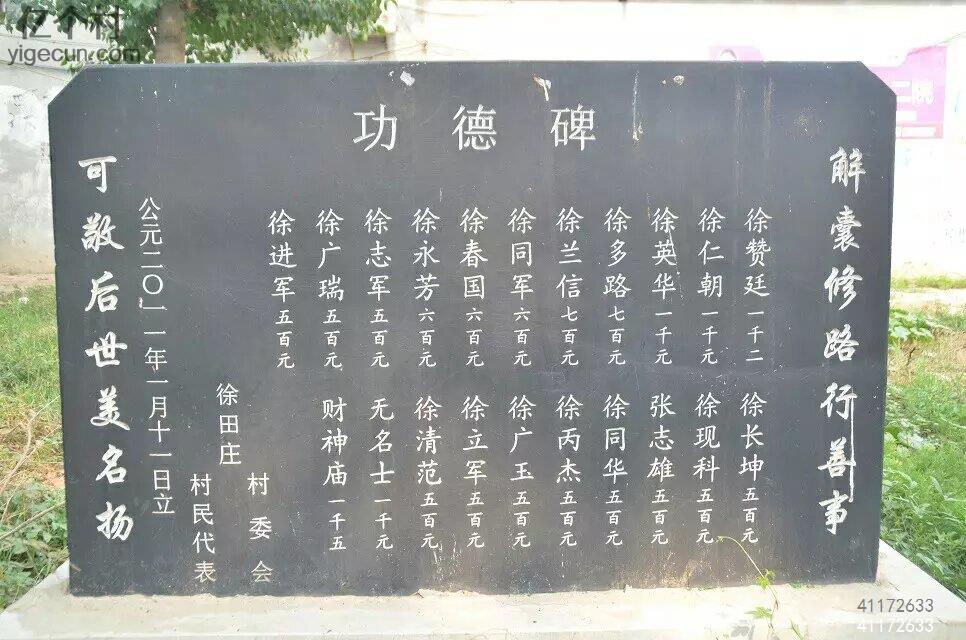 亿个村
yigecun.com
二院
功德碑
解囊修路行善事
徐赞廷一千二
徐长坤五百元
徐仁朝一千元
徐现科五百元
徐英华一千元
张志雄五百元
徐多路七百元
徐同华五百元
徐兰信七百元
徐丙杰五百元
徐同军六百元
徐广玉五百元
徐春国六百元
徐立军五百元
徐永芳六百元
徐清范五百元
徐志军五百元
无名士一千元
徐广瑞五百元
财神庙一千五
徐进军五百元
徐田庄
村委会
村民代表
公元二〇一一年一月十一日立
可敬后世美名扬
41172633
41172633